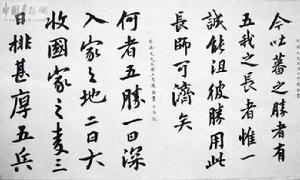 今吐蕃之勝者有
五我之長者惟一
誠能沮彼勝用此
長師可濟矣
何者五勝一曰深
入家之地二曰大
收國家之麦三
曰排甚厚五兵